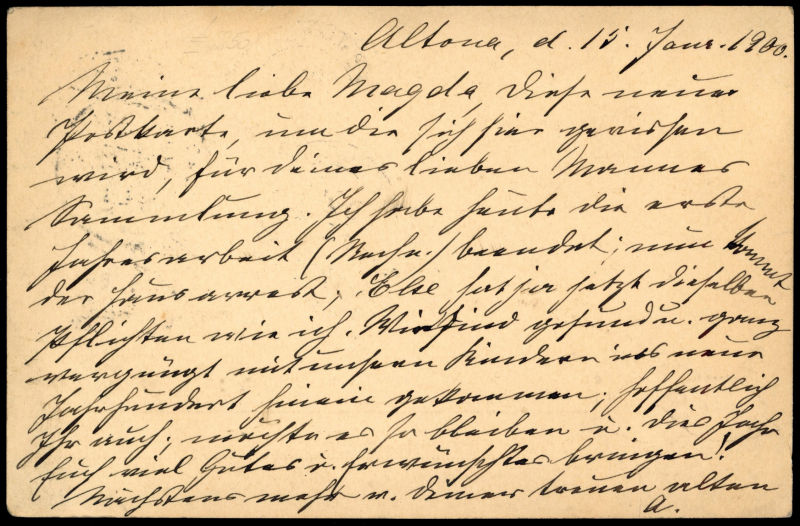 Altona, d. 15. Janr. 1900.
Meine liebe Magda, diese neue
Postkarte, um die sich hier gerissen
wird, für deines lieben Mannes
Sammlung. Ich habe heute die erste
Jahresarbeit (Rechn.) beendet; nun kommt
der Hausarrest; Else hat ja jetzt dieselben
Pflichten wie ich. Wir sind gesund u. ganz
vergnügt mit unsern Kindern ins neue
Jahrhundert hinein gekommen; hoffentlich
Ihr auch; möchte es so bleiben u. dies Jahr
Euch viel Gutes u. Erwünschtes bringen!
Nächstens mehr v. deiner treuen alten
A.